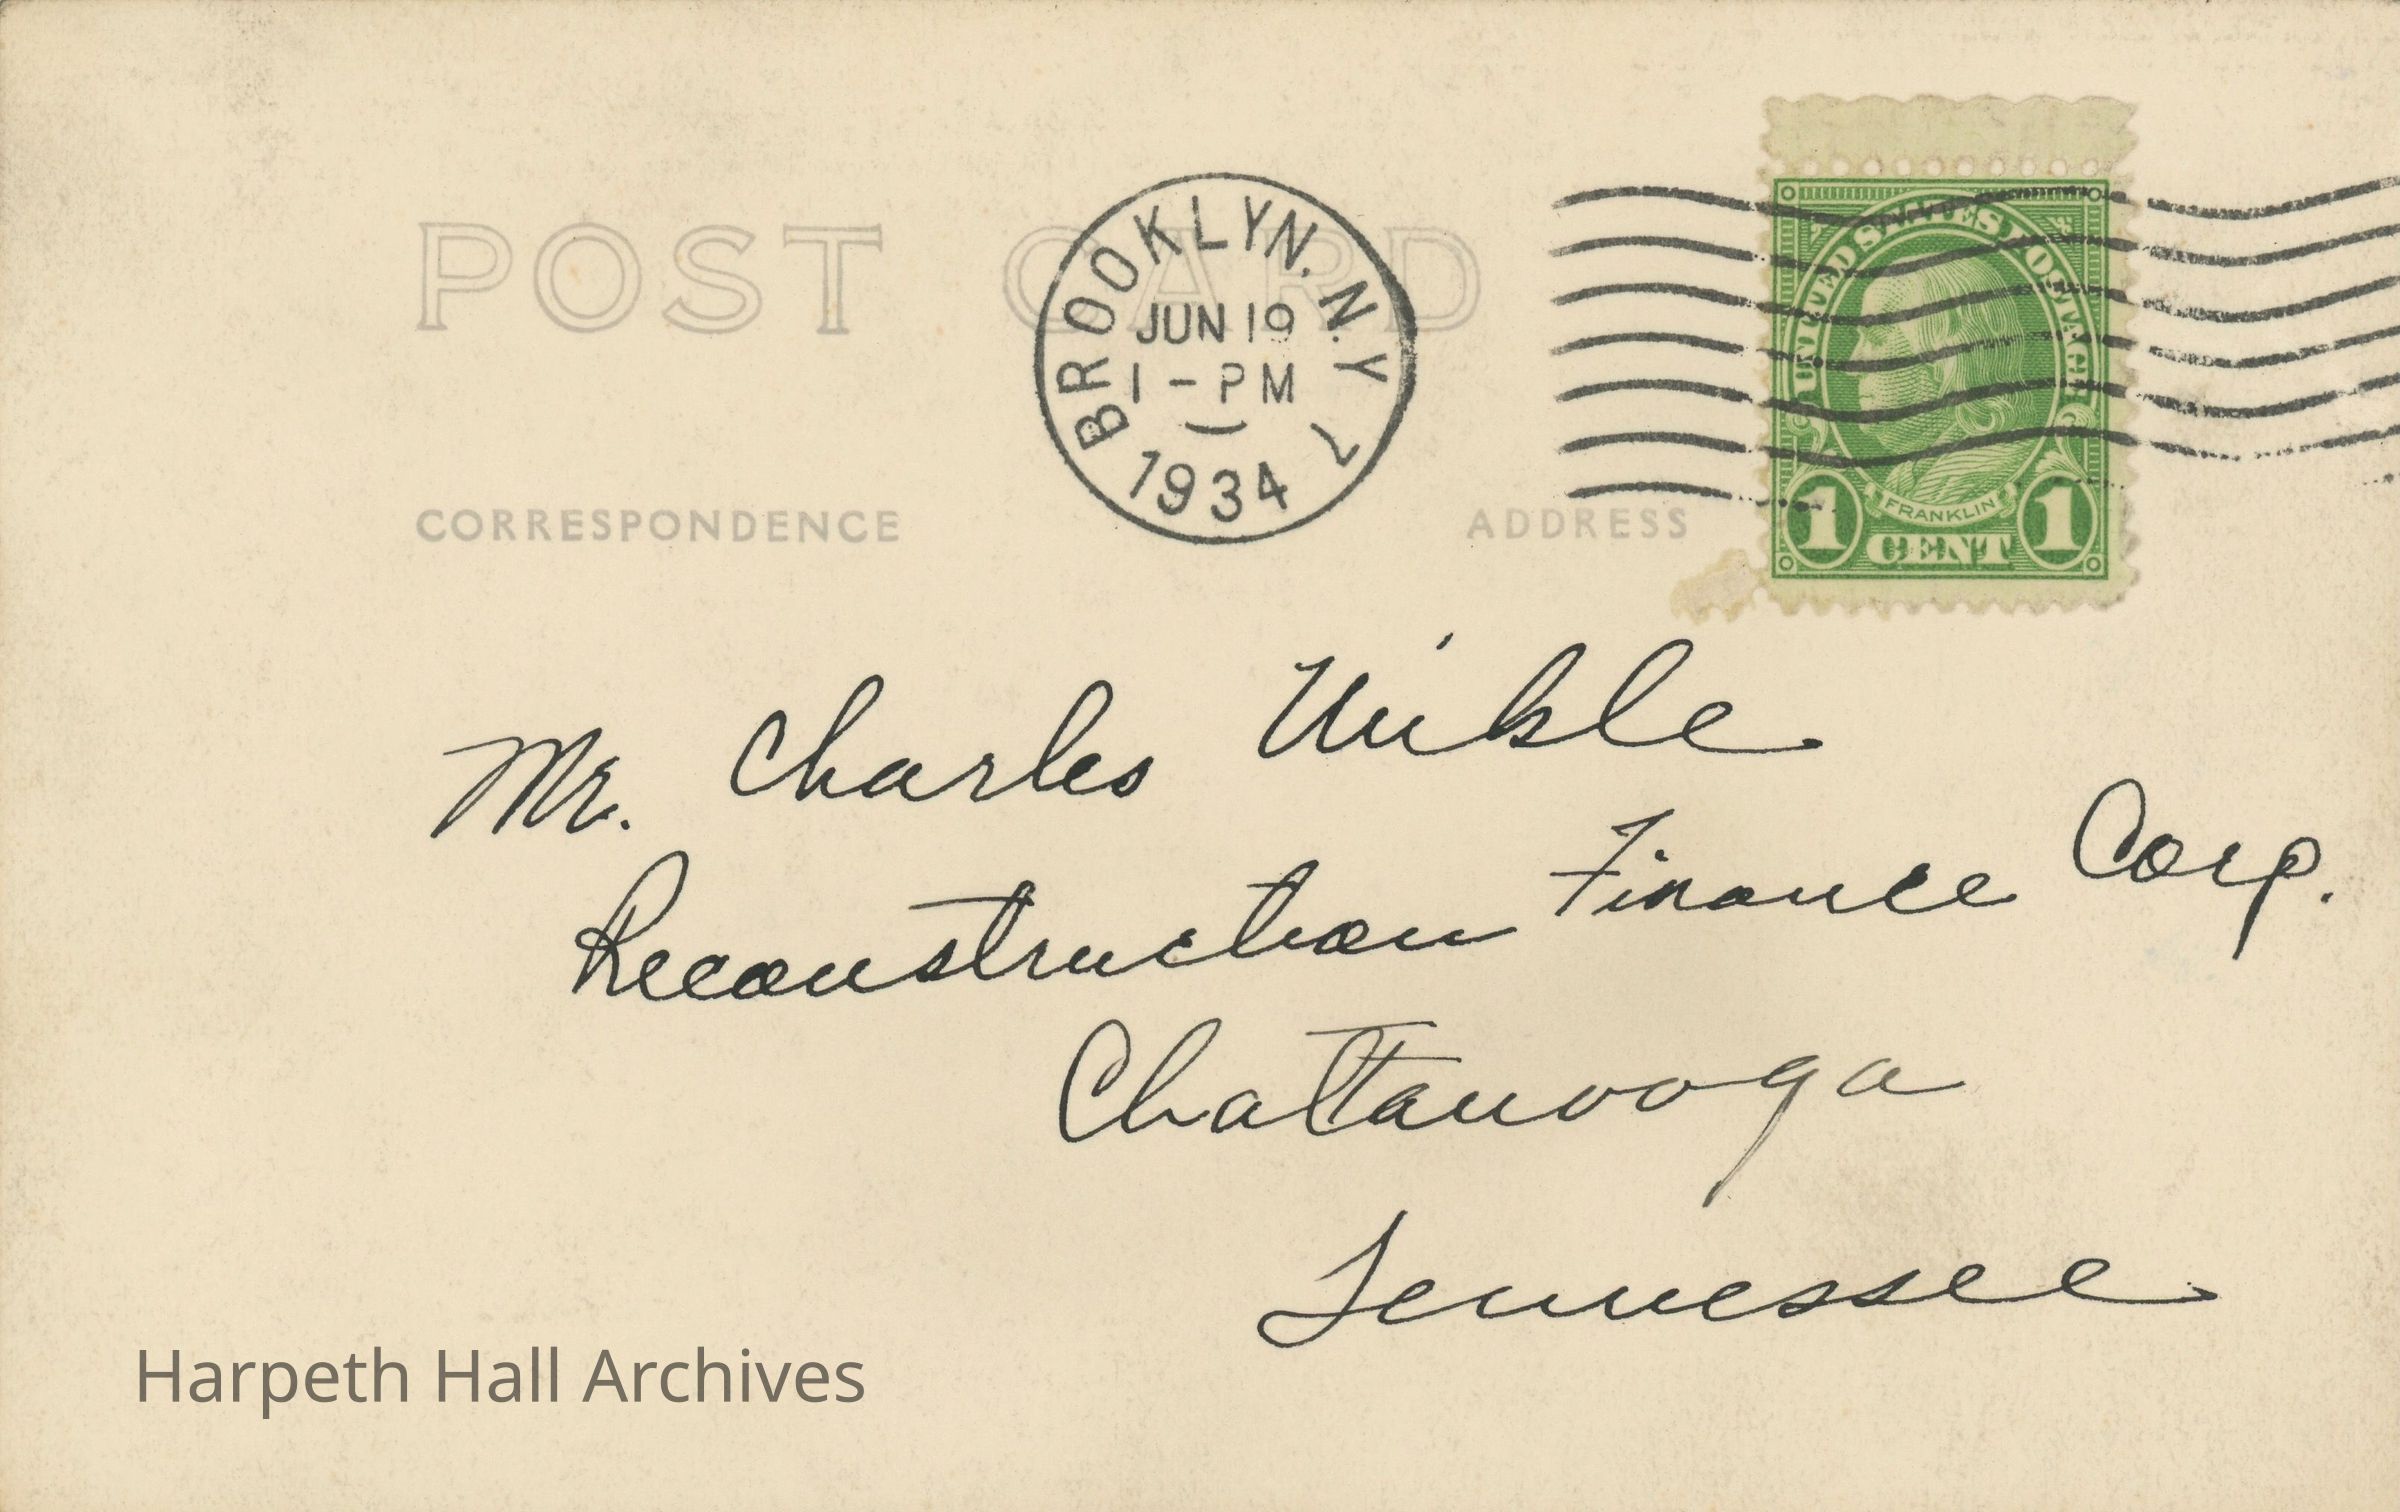 POST CARD
BROOKLYN, N.Y.
JUN 19
1-PM
1934
7
UNITED STATES POSTAGE
FRANKLIN
1 CENT 1
CORRESPONDENCE
ADDRESS
Mr. Charles
Reconstruction Finance Corp.
Chattanooga
Tennessee
Harpeth Hall Archives